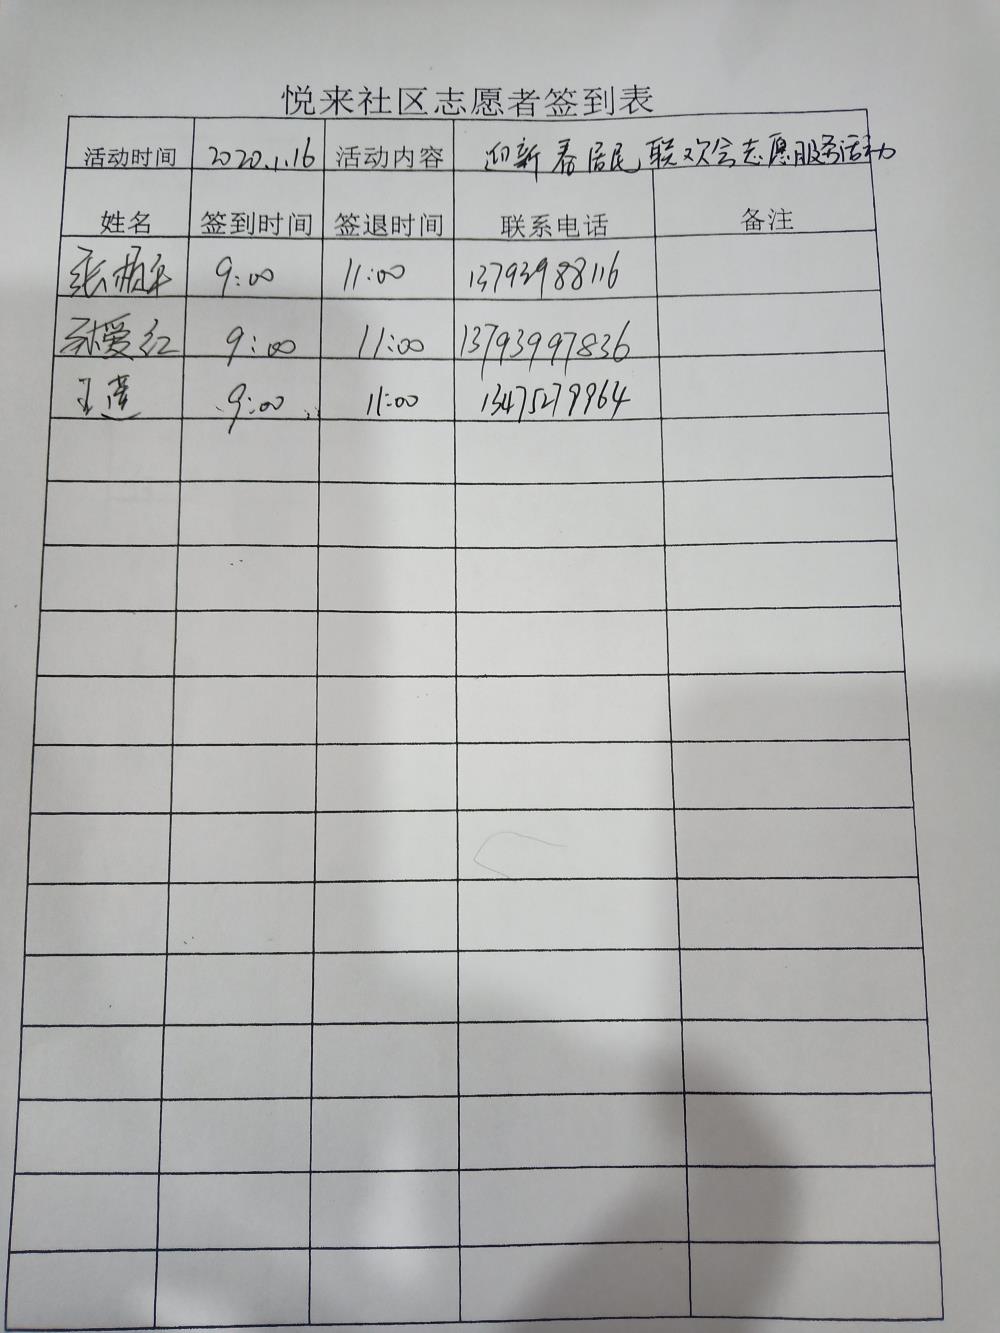 悦来社区志愿者签到表
活动时间 2020.1.16 活动内容 迎新春居民联欢会志愿服务活动
姓名 签到时间 签退时间 联系电话 备注
张 9:00 11:00 13793988116
爱红 9:00 11:00 13793997836
王莲 9:00 11:00 13475279964